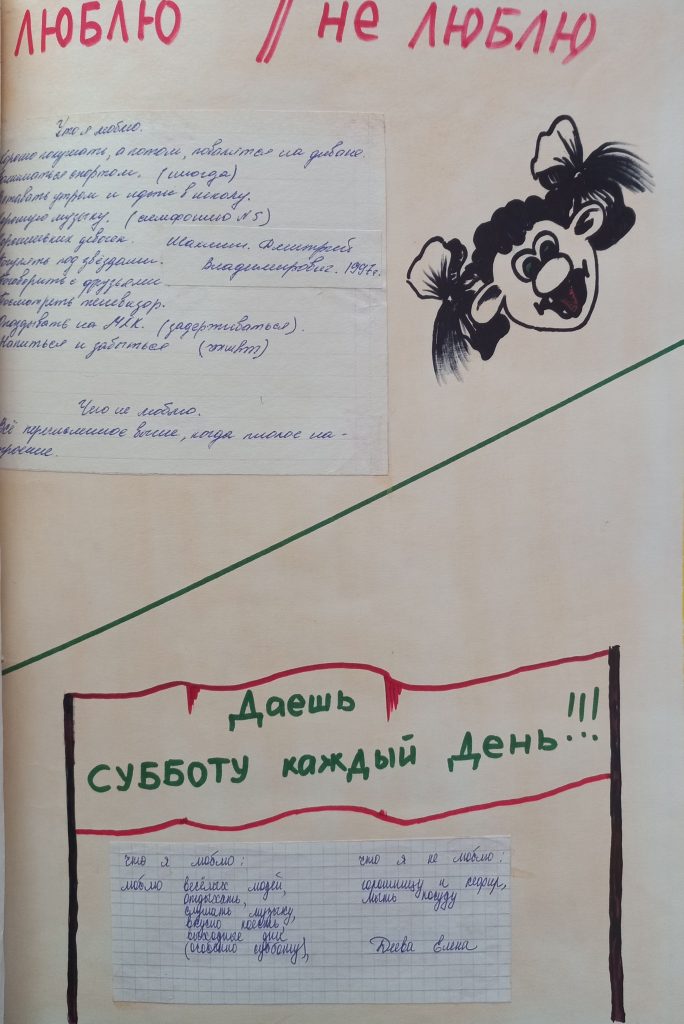 ЛЮБЛЮ // не ЛЮБЛЮ
Что я люблю.
Хорошо покушать, а потом, поваляться на диване.
Заниматься спортом. (иногда)
Вставать утром и идти в школу.
Хорошую музыку. (симфонию №5)
девочек.
под звёздами.
Шаклеин Дмитрий
Владимирович. 1997г.
Поговорить с друзьями
Посмотреть телевизор.
Опоздывать на МХК. (задерживаться).
Напиться и забыться
Что не люблю.
Всё перечисленное выше, когда плохое на-
троение.
Даешь !!!
СУББОТУ каждый День
что я люблю: что я не люблю:
люблю весёлых людей, горошницу и кефир,
отдыхать, мыть посуду
слушать музыку,
вкусно поесть,
выходные дни
(особенно субботу), Деева Елена